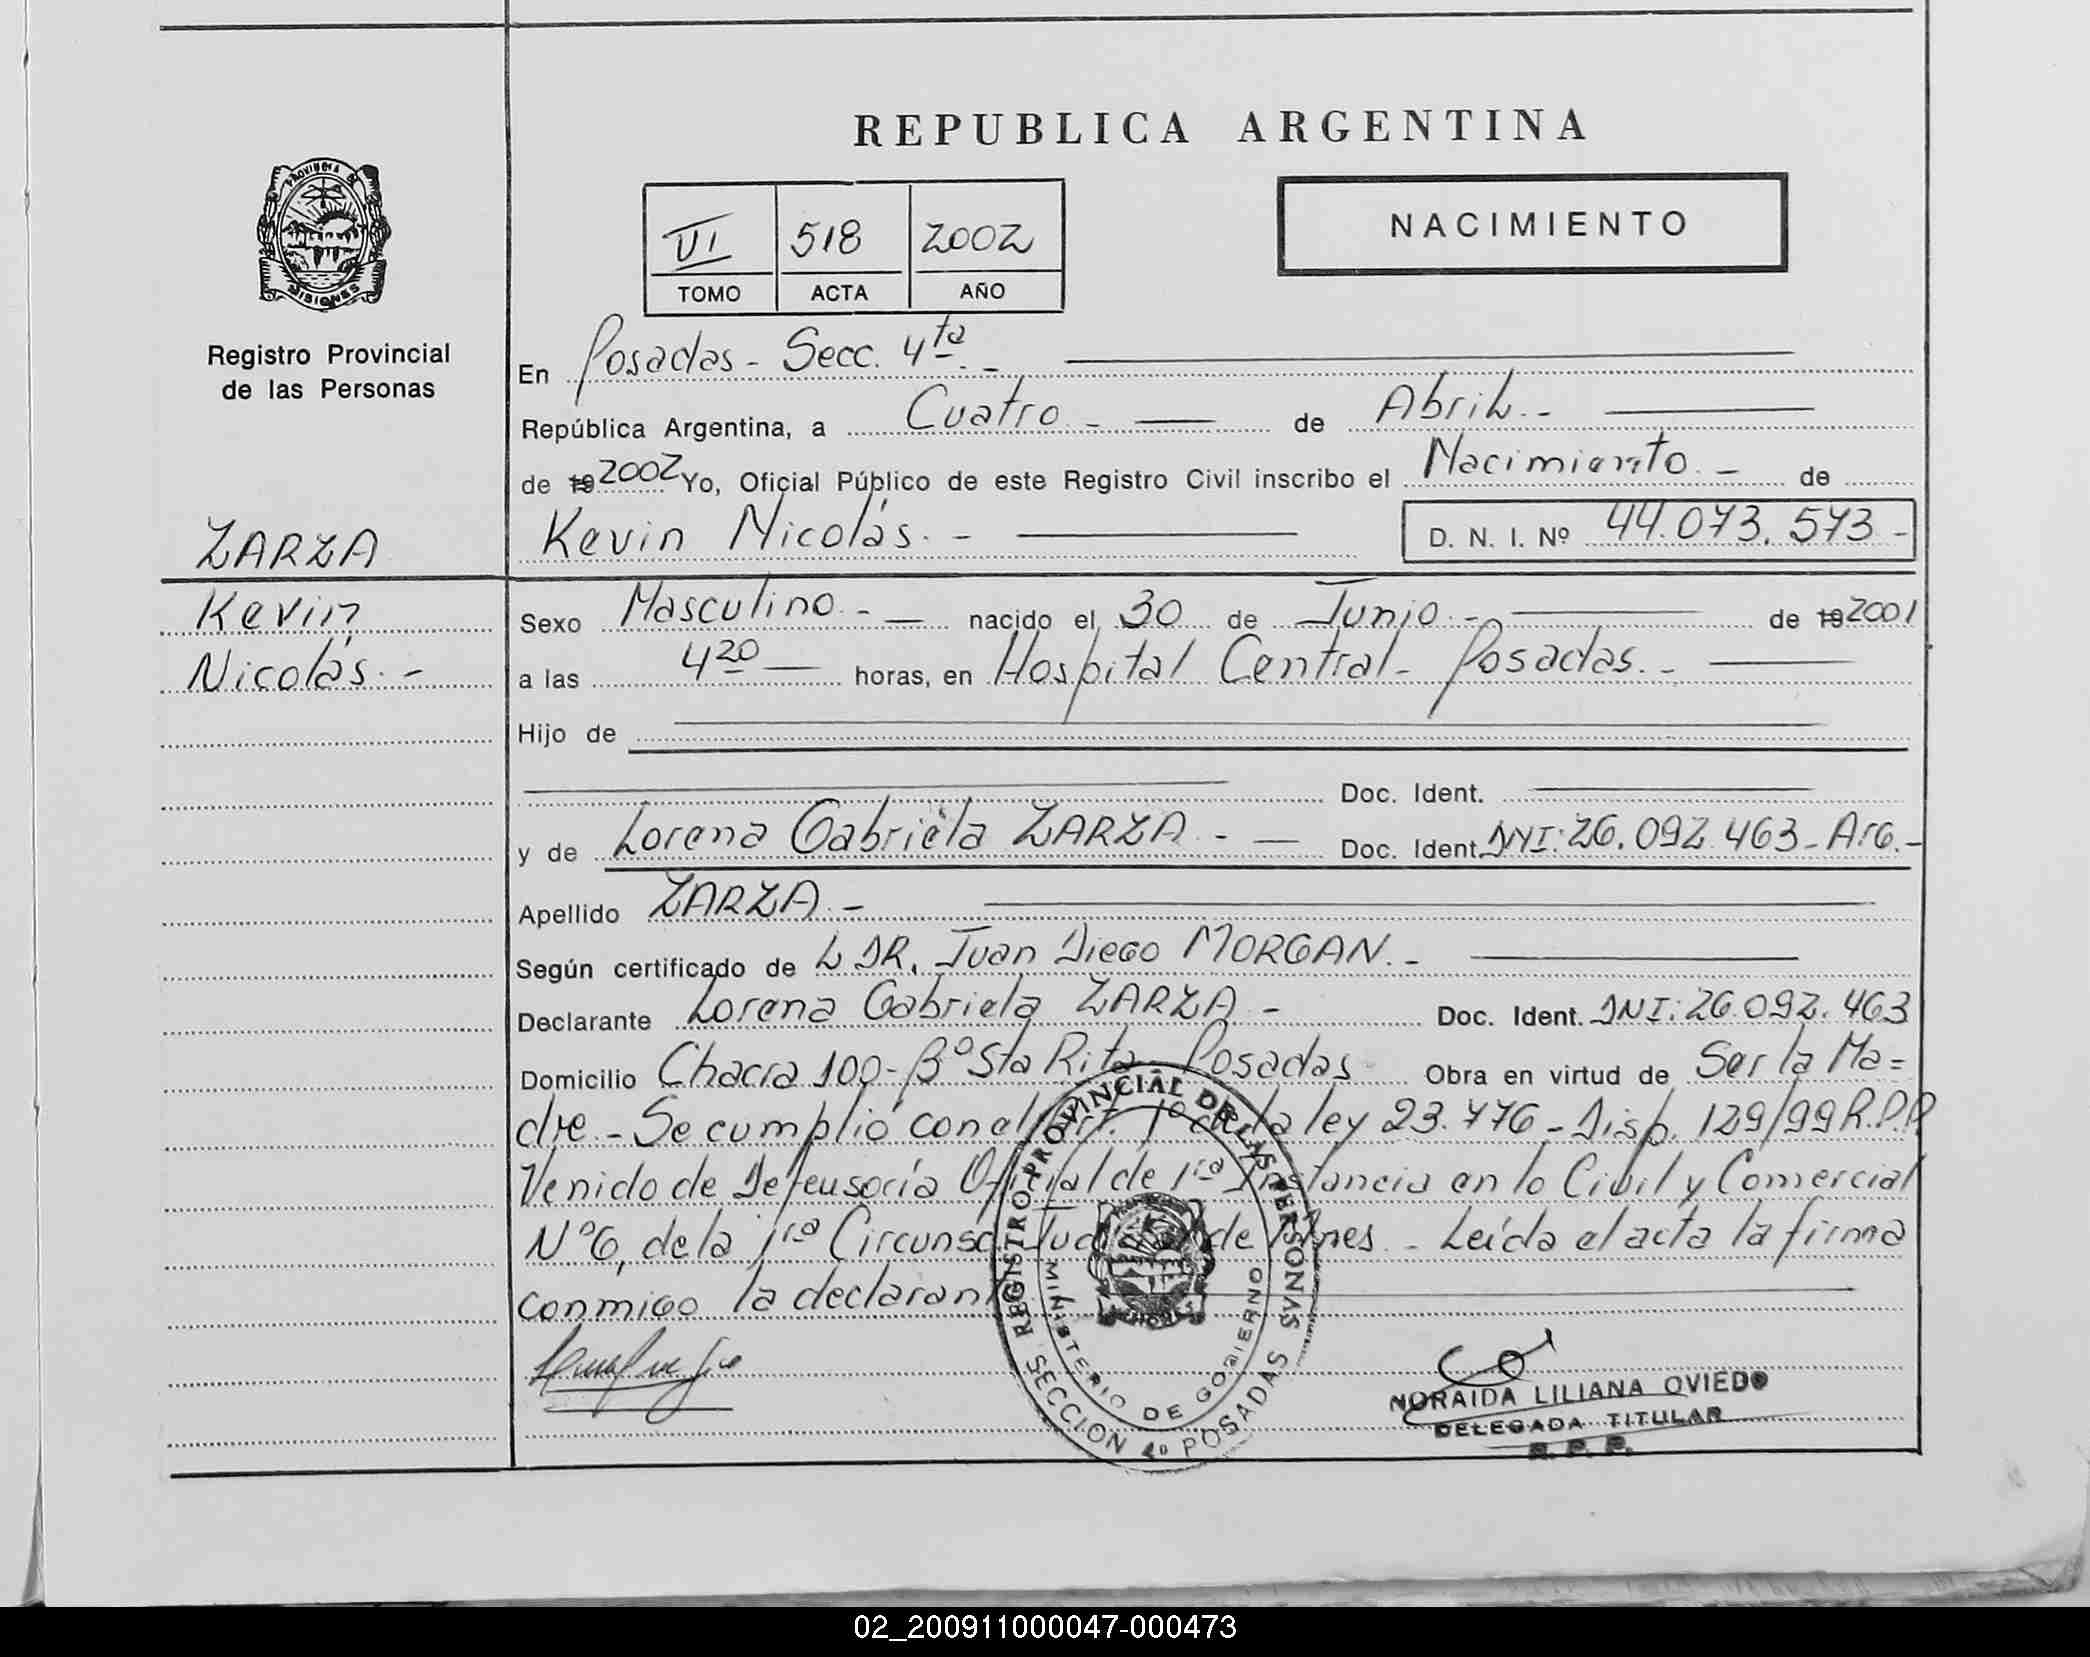 REPUBLICA ARGENTINA
PROVINCIA DE
MISIONES
Registro Provincial
de las Personas
VI 518 2002
TOMO ACTA AÑO
NACIMIENTO
En Posadas - Secc. 4ta -
República Argentina, a Cuatro - de Abril -
de 19 2002 Yo, Oficial Público de este Registro Civil inscribo el Nacimiento - de
ZARZA Kevin Nicolás. - D. N. I. Nº 44.073.573 -
Kevin Sexo Masculino - nacido el 30 de Junio - de 19 2001
Nicolás. - a las 4 20 horas, en Hospital Central - Posadas. -
Hijo de
Doc. Ident.
y de Lorena Gabriela ZARZA - Doc. Ident. DNI: 26.092.463 - Arg. -
Apellido ZARZA -
Según certificado de L DR. Juan Diego MORGAN. -
Declarante Lorena Gabriela ZARZA - Doc. Ident. DNI: 26.092.463
Domicilio Chacra 100 - Bº Sta Rita - Posadas Obra en virtud de Ser la Ma=
dre - Se cumplió con el Art. 1º de la ley 23.776 - Disp. 129/99 R.P.P.
Venido de Defensoría Oficial de 1ra Instancia en lo Civil y Comercial
Nº 6, de la 1ra Circunsc. Jud. de Mnes. - Leída el acta la firma
conmigo la declarante
REGISTRO PROVINCIAL DE LAS PERSONAS
MINISTERIO DE GOBIERNO
SECCION 4º POSADAS
NORAIDA LILIANA OVIEDO
DELEGADA TITULAR
R. P. P.
02_200911000047-000473